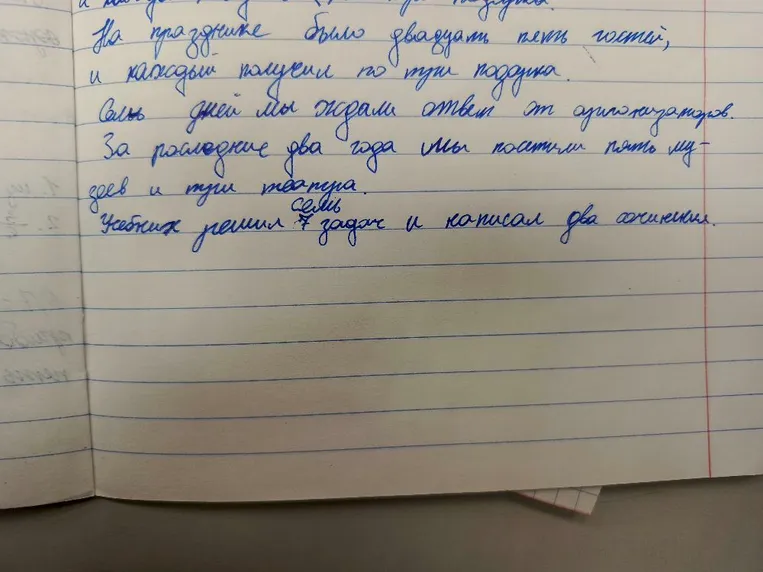 и каждый по три подарка.
На празднике было двадцать пять гостей,
и каждый получил по три подарка.
Семь дней мы ждали ответ от организаторов.
За последние два года мы посетили пять му-
зеев и три театра.
семь
Учебник решил 7 задач и написал два сочинения.